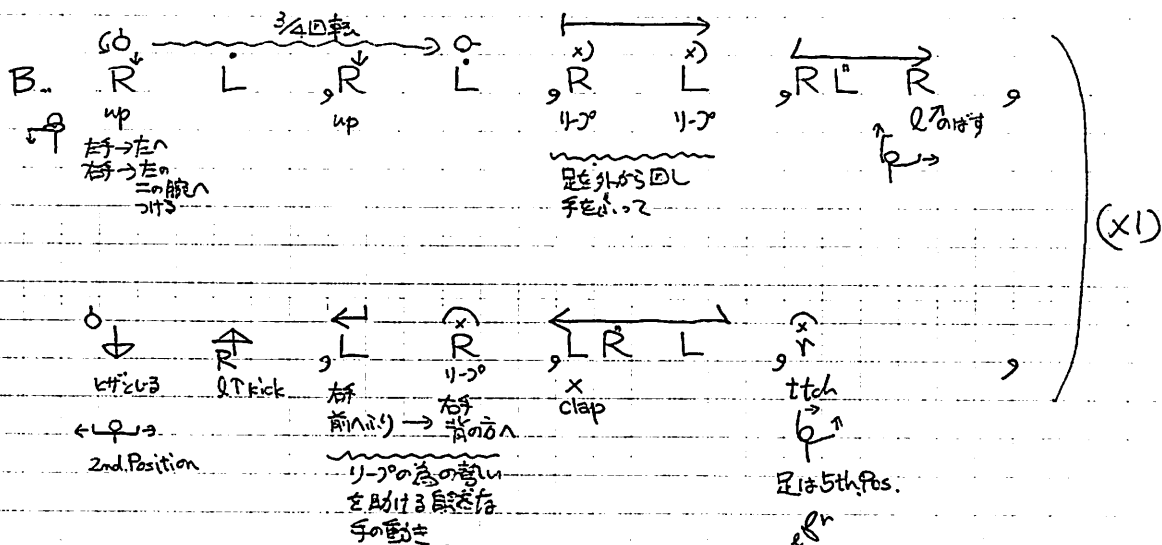 3/4回転
B.. R L , R L , R L , R L R ,
up up リープ リープ ℓ↗のばす
左手→左へ
右手→左の
二の腕へ
つける
足を外から回し
手をふって
(×1)
R , L R , L R L , r ,
ヒザとじる ℓ↑kick 右手 リープ × ttch
前へふり → 右手 背の方へ clap
2nd.Position
リープの為の勢い
を助ける自然な
手の動き
足は5th.Pos.
ℓ r